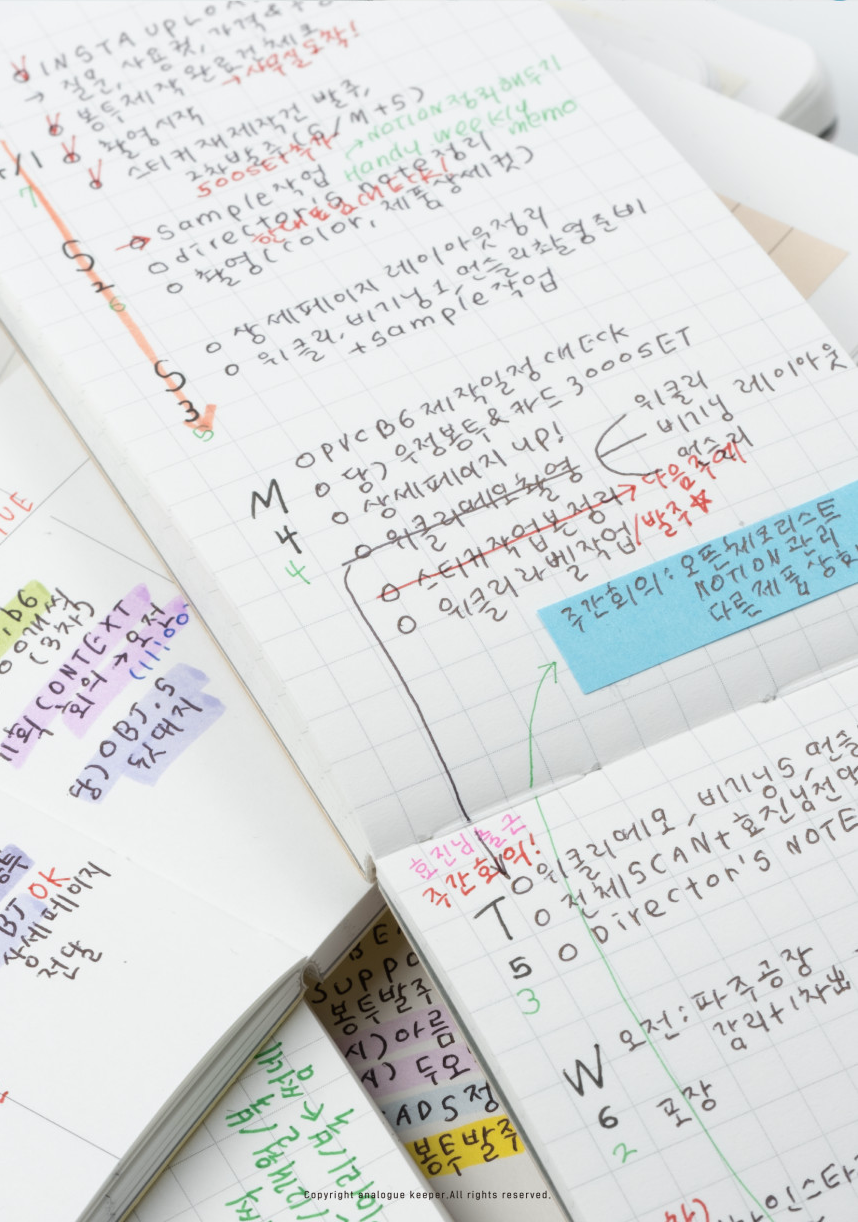 INSTA UPLO
→ 질문, 사용컷, 가격 &
봉투제작 완료건 체크
→ 사무실 도착!
촬영 시작
스티커 재제작건 발주,
2차발주 (S/M+S)
500SET 추가
→ NOTION 정리해두기
Handy weekly
memo
/1
7
S
2
6
sample 작업
director's note 정리
촬영 (color, 제품상세컷)
S
3
5
상세페이지 레이아웃 정리
위클리, 비기닝 1, 먼슬리 촬영준비
+ sample 작업
M
4
4
PVC B6 제작일정 CHECK
당) 우정봉투 & 카드 3000SET
상세페이지 UP!
위클리메모 촬영
스티커작업본 정리 → 다음주에
위클리라벨작업 / 발주☆
위클리
비기닝 레이아웃
먼슬리
주간회의: 오픈체크리스트
NOTION 관리
다른제품 상
호진님 출근
주간회의!
T
5
3
위클리메모, 비기닝 S, 먼슬
전체 SCAN + 호진님 전달
Director's NOTE
W
6
2
오전: 파주공장
감리 + 1차
포장
UE
.b6
(3차)
CONTEXT
회의 → 오전
(11:00
당) OBJ.S
뒷대지
BJ OK
상세페이지
전달
SUPPO
봉투발주
시) 아름
ADS 정
봉투발주
Copyright analogue keeper.All rights reserved.